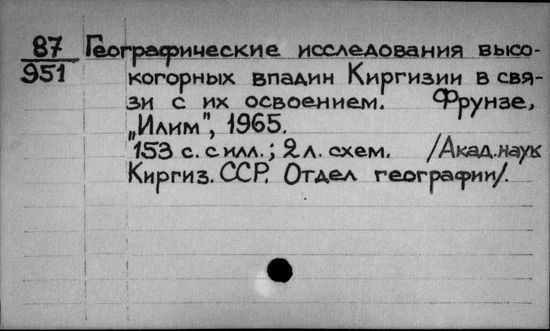 87 Географические исследования высо-
951 когорных впадин Киргизии в свя-
зи с их освоением. Фрунзе,
„Илим", 1965.
153 с. с илл.; 2 л. схем. /Акад. наук
Киргиз. ССР. Отдел географии/.